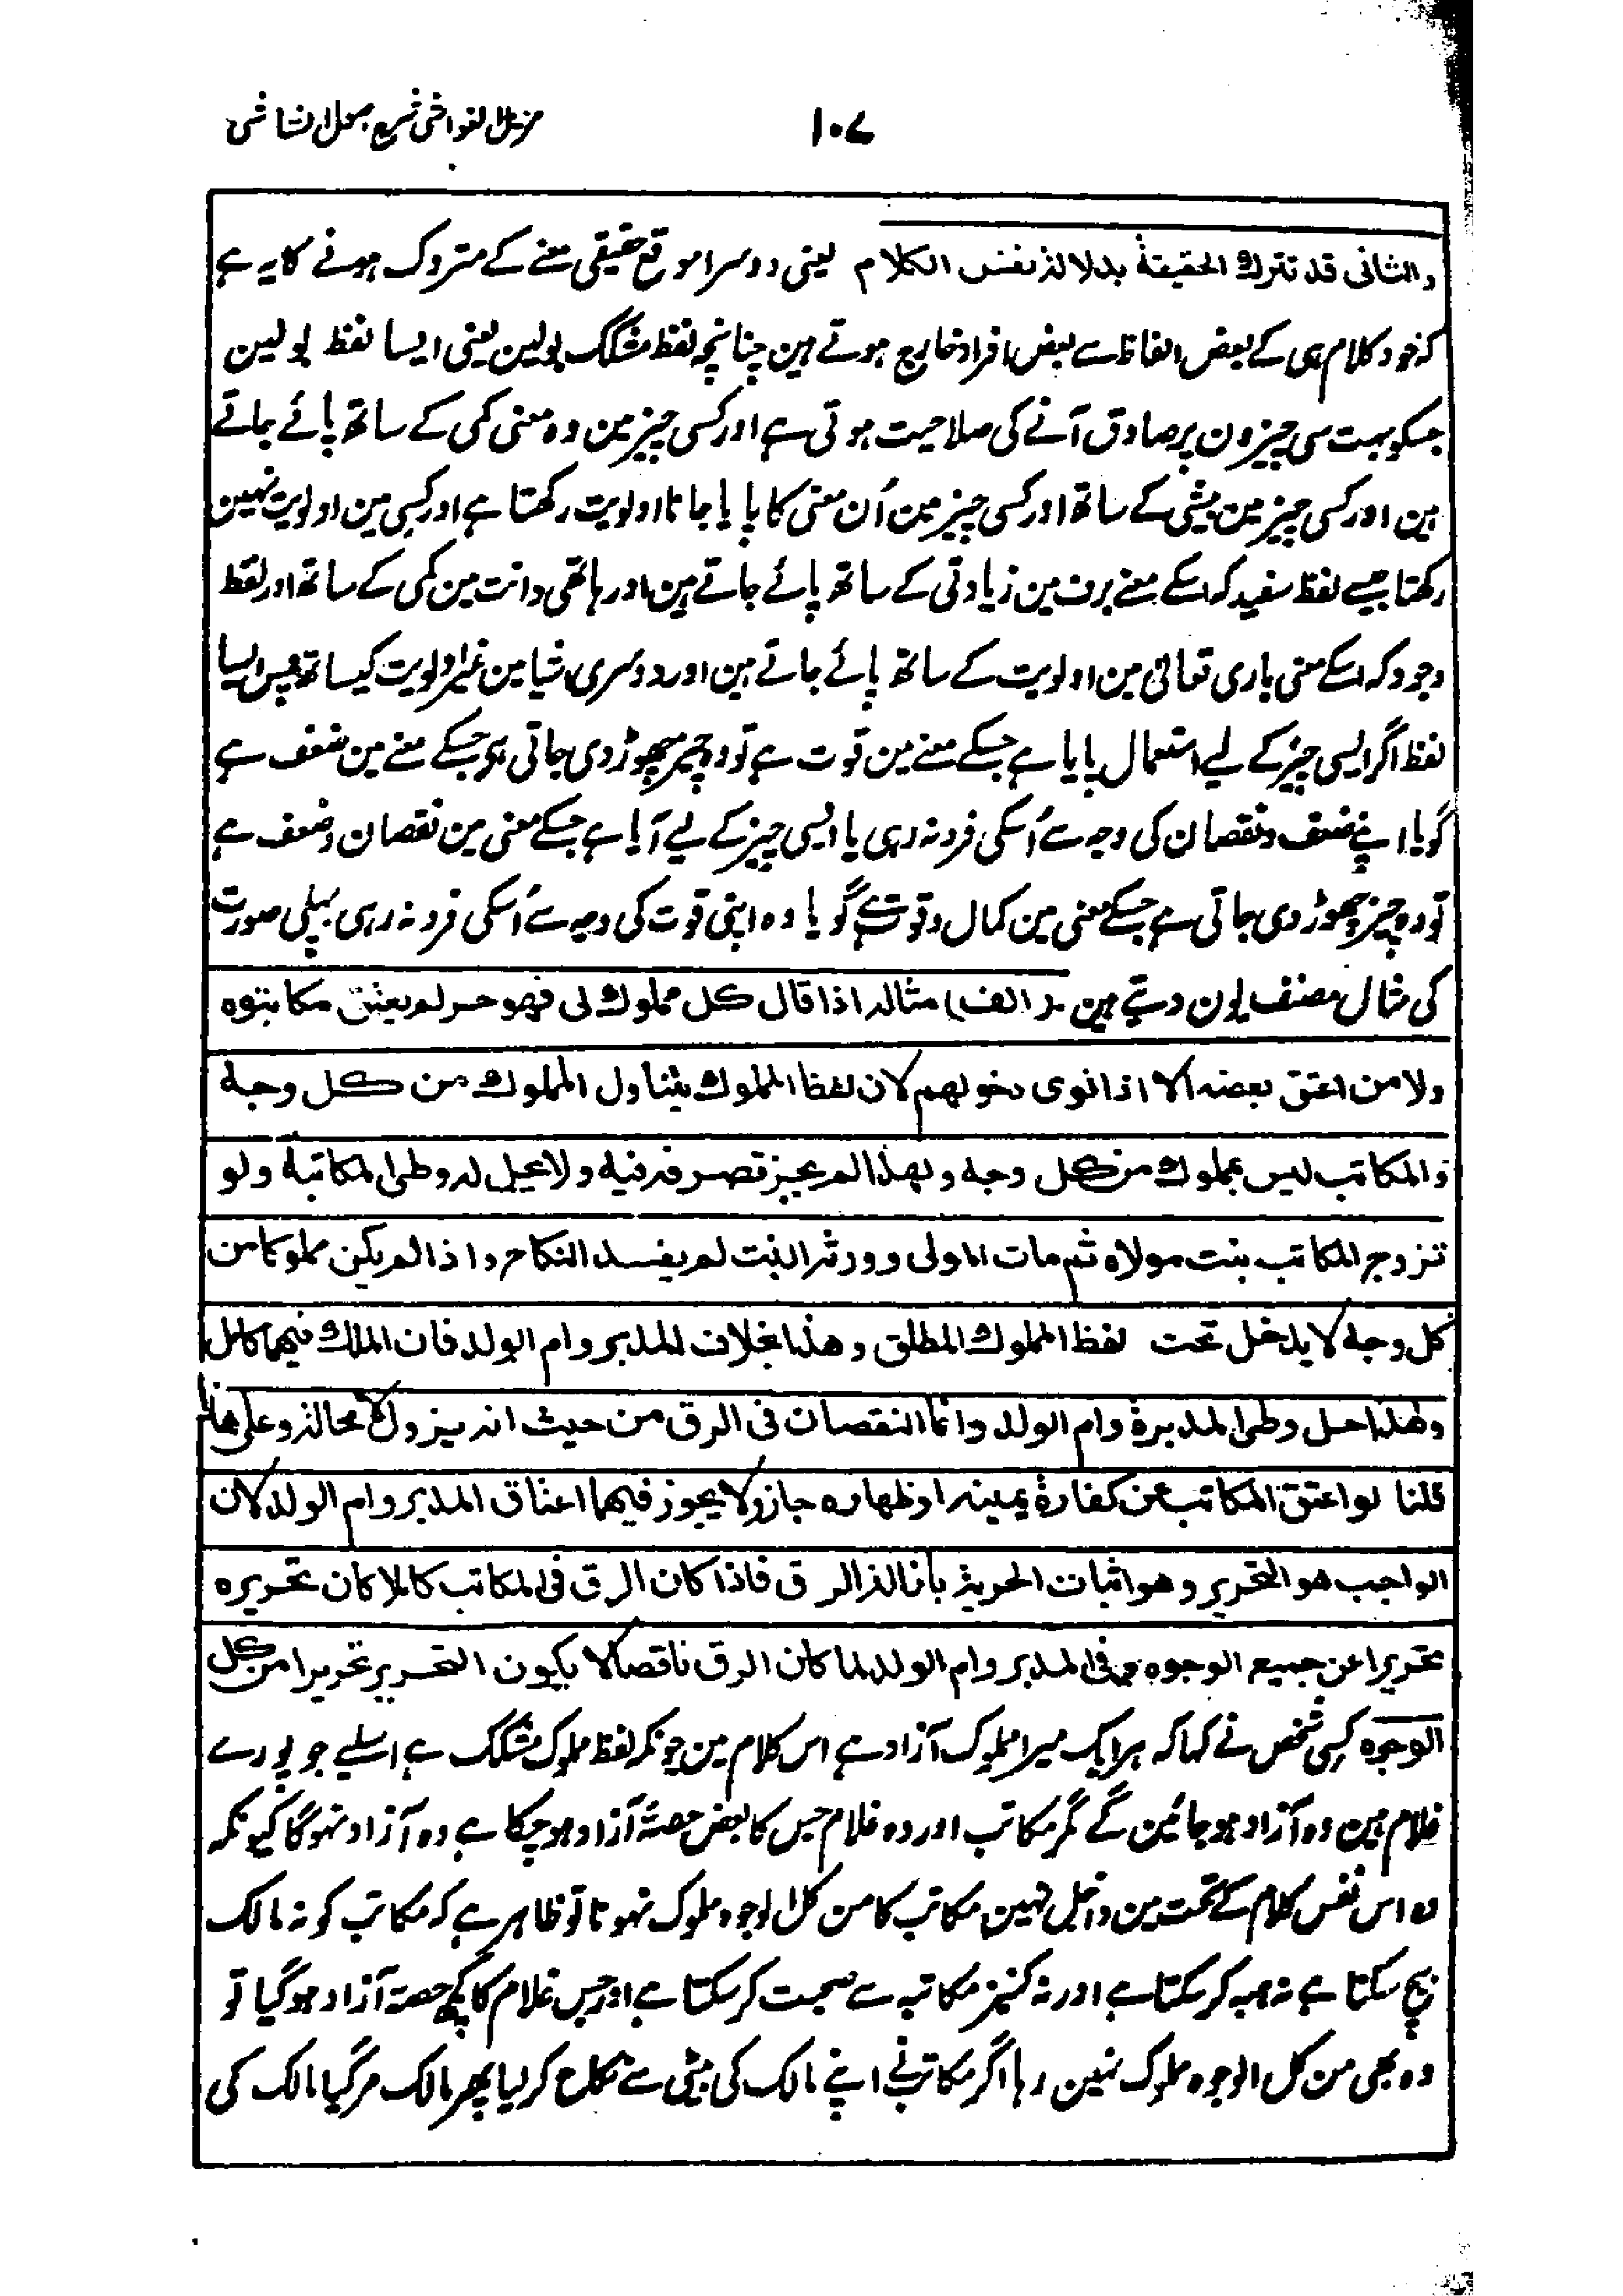 ۱۰۷
مزیل الغواشی شرح اصول الشاشی
والثانی قد تترک الحقیقة بدلالة نفس الکلام یعنی دوسرا موقع حقیقی معنے کے متروک ہونے کا یہ ہے
کہ خود کلام ہی کے بعض الفاظ سے بعض افراد خارج ہوتے ہین چنانچہ لفظ مشکک بولین یعنی ایسا لفظ بولین
جسکو بہت سی چیزون پر صادق آنے کی صلاحیت ہوتی ہے اور کسی چیز مین وہ معنی کمی کے ساتھ پائے جاتے
ہین اور کسی چیز مین بیشی کے ساتھ اور کسی چیز مین اُن معنی کا پایا جانا اولویت رکھتا ہے اور کسی مین اولویت نہین
رکھتا جیسے لفظ سفید کہ اسکے معنے برف مین زیادتی کے ساتھ پائے جاتے ہین اور ہاتھی دانت مین کمی کے ساتھ اور لفظ
وجود کہ اسکے معنی باری تعالیٰ مین اولویت کے ساتھ پائے جاتے ہین اور دوسری اشیا مین غیر اولویت کیساتھ پس ایسا
لفظ اگر ایسی چیز کے لیے استعمال پایا ہے جسکے معنے مین قوت ہے تو وہ چیز چھوڑ دی جاتی ہو جسکے معنے مین ضعف ہے
گویا اپنے ضعف و نقصان کی وجہ سے اُسکی فرد نہ رہی یا ایسی چیز کے لیے آیا ہے جسکے معنی مین نقصان و ضعف ہے
تو وہ چیز چھوڑ دی جاتی ہے جسکے معنی مین کمال و قوت ہے گویا وہ اپنی قوت کی وجہ سے اُسکی فرد نہ رہی پہلی صورت
کی مثال مصنف یون دیتے ہین۔ (الف) مثاله اذا قال کل مملوك لی فهو حر لم یعتق مکاتبوه
ولا من اعتق بعضه الا اذا نوی دخولهم لان لفظ المملوك یتناول المملوك من کل وجه
والمکاتب لیس بمملوك من کل وجه ولهذا لم یجز تصرفه فیه ولا یحل له وطی المکاتبة ولو
تزوج المکاتب بنت مولاه ثم مات المولی وورثته البنت لم یفسد النکاح واذا لم یکن مملوکا من
کل وجه لا یدخل تحت لفظ المملوك المطلق وهذا بخلاف المدبر وام الولد فان الملك فیهما کامل
ولهذا حل وطی المدبرة وام الولد وانما النقصان فی الرق من حیث انه یزول لا محالة وعلی هذا
قلنا لو اعتق المکاتب عن کفارة یمینه او ظهاره جاز ولا یجوز فیهما اعتاق المدبر وام الولد لان
الواجب هو التحریر وهو اثبات الحریة بازالة الرق فاذا کان الرق فی المکاتب کاملا کان تحریره
تحریرا عن جمیع الوجوه وفی المدبر وام الولد لما کان الرق ناقصا لا یکون التحریر تحریرا من کل
الوجوه کسی شخص نے کہا کہ ہر ایک میرا مملوک آزاد ہے اس کلام مین چونکہ لفظ مملوک مشکک ہے اسلیے جو پورے
غلام ہین وہ آزاد ہو جائین گے مگر مکاتب اور وہ غلام جس کا بعض حصہ آزاد ہو چکا ہے وہ آزاد نہوگا کیونکہ
وہ اس نفس کلام کے تحت مین داخل نہین مکاتب کا من کل الوجوہ مملوک نہونا تو ظاہر ہے کہ مکاتب کو نہ مالک
بیچ سکتا ہے نہ ہبہ کر سکتا ہے اور نہ کنیز مکاتبہ سے صحبت کر سکتا ہے اور جس غلام کا کچھ حصہ آزاد ہو گیا تو
وہ بھی من کل الوجوہ مملوک نہین رہا اگر مکاتب نے اپنے مالک کی بیٹی سے نکاح کر لیا پھر مالک مر گیا مالک کی